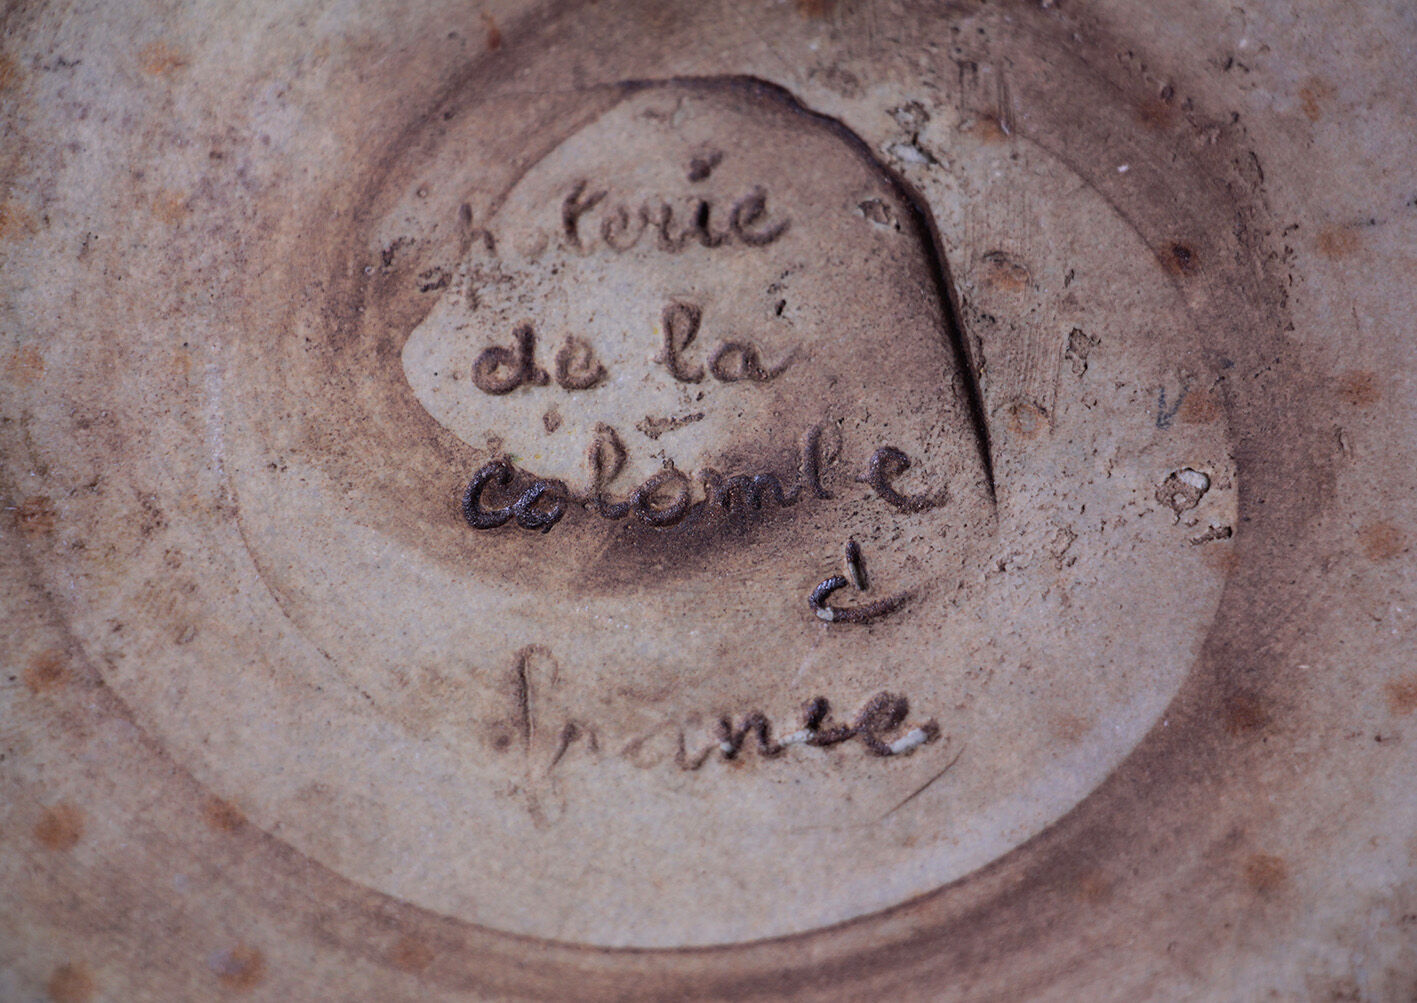 poterie
de la
colombe
d
france